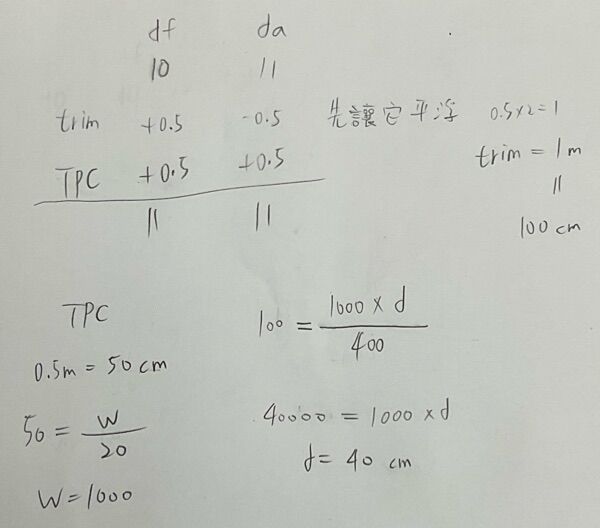 df da
10 11
trim +0.5 -0.5 先讓它平浮 0.5x2=1
trim = 1m
TPC +0.5 +0.5
11 11
||
100 cm
TPC
0.5m = 50 cm
50 = W
20
W = 1000
100 = 1000 x d
400
40000 = 1000 x d
d = 40 cm